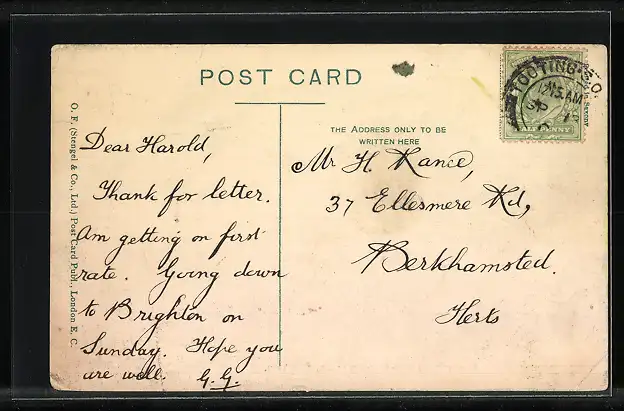 POST CARD
THE ADDRESS ONLY TO BE
WRITTEN HERE
TOOTING S.O.
HALFPENNY
O. F. (Stengel & Co., Ltd.) Post Card Publ., London E. C.
Dear Harold,
Thank for letter.
Am getting on first
rate. Going down
to Brighton on
Sunday. Hope you
are well. G.G.
Mr H. Rance,
37 Ellesmere Rd,
Berkhamsted.
Herts